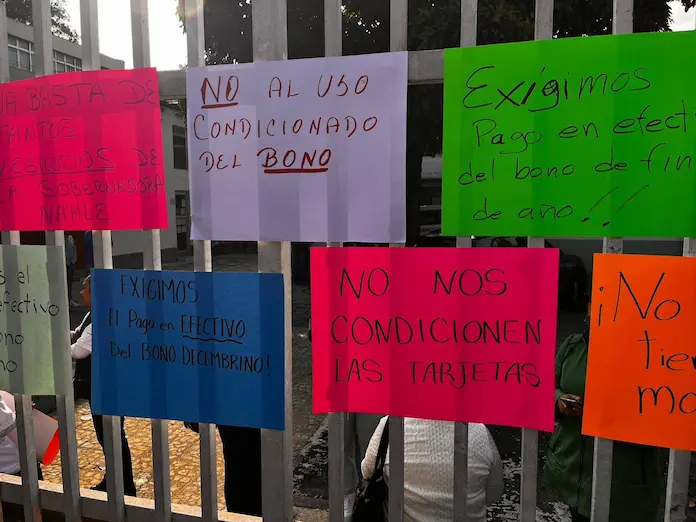 YA BASTA DE
TANTOS
NEGOCIOS DE
LA GOBERNADORA
NAHLE
NO AL USO
CONDICIONADO
DEL BONO
Exígimos
Pago en efecti
del bono de fin
de año!!
s el
efectivo
ono
no
EXIGIMOS
El Pago en EFECTIVO
Del BONO DECEMBRINO!
NO NOS
CONDICIONEN
LAS TARJETAS
¡No
tien
mo